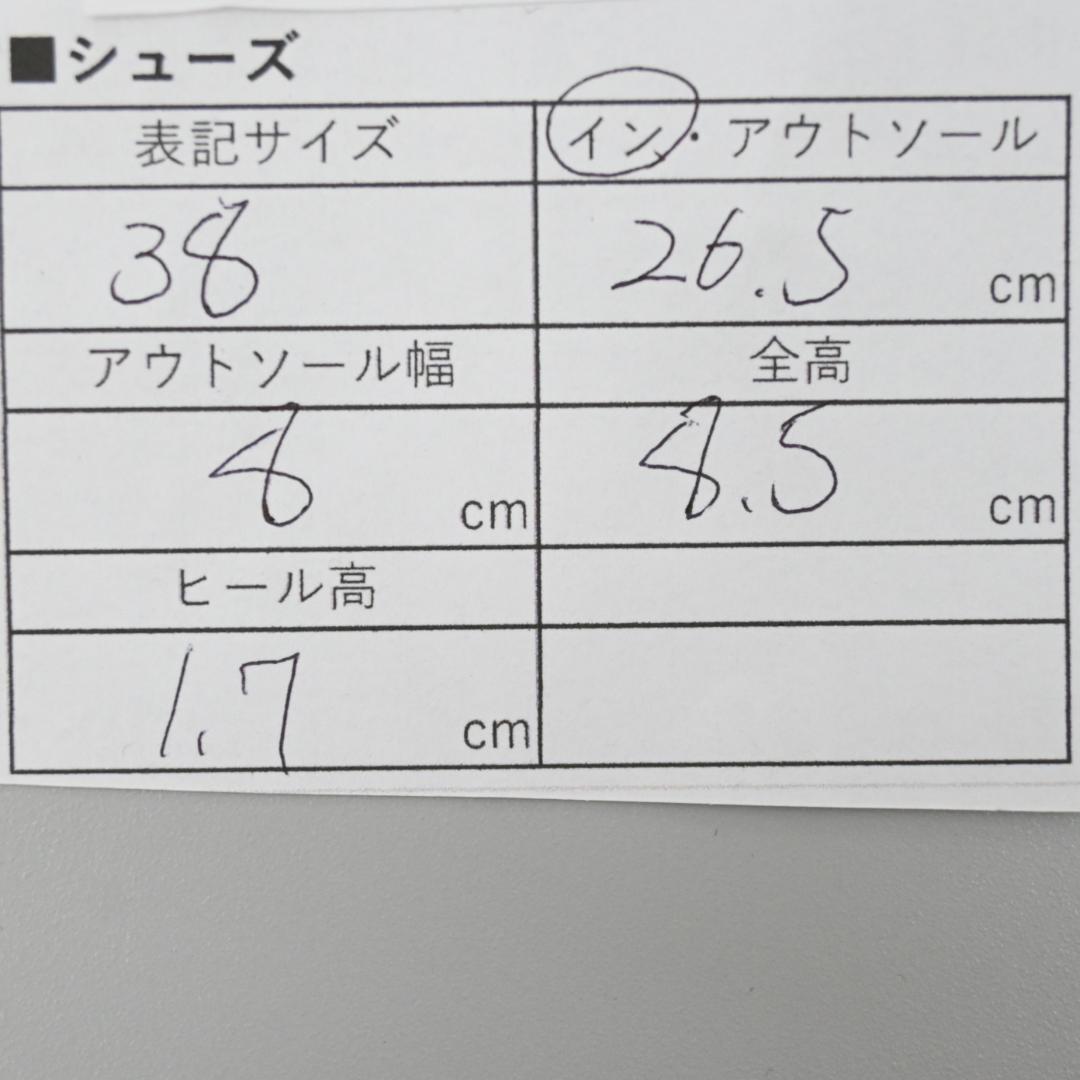 ■シューズ
表記サイズ イン・アウトソール
38 26.5 cm
アウトソール幅 全高
8 cm 8.5 cm
ヒール高
1.7 cm